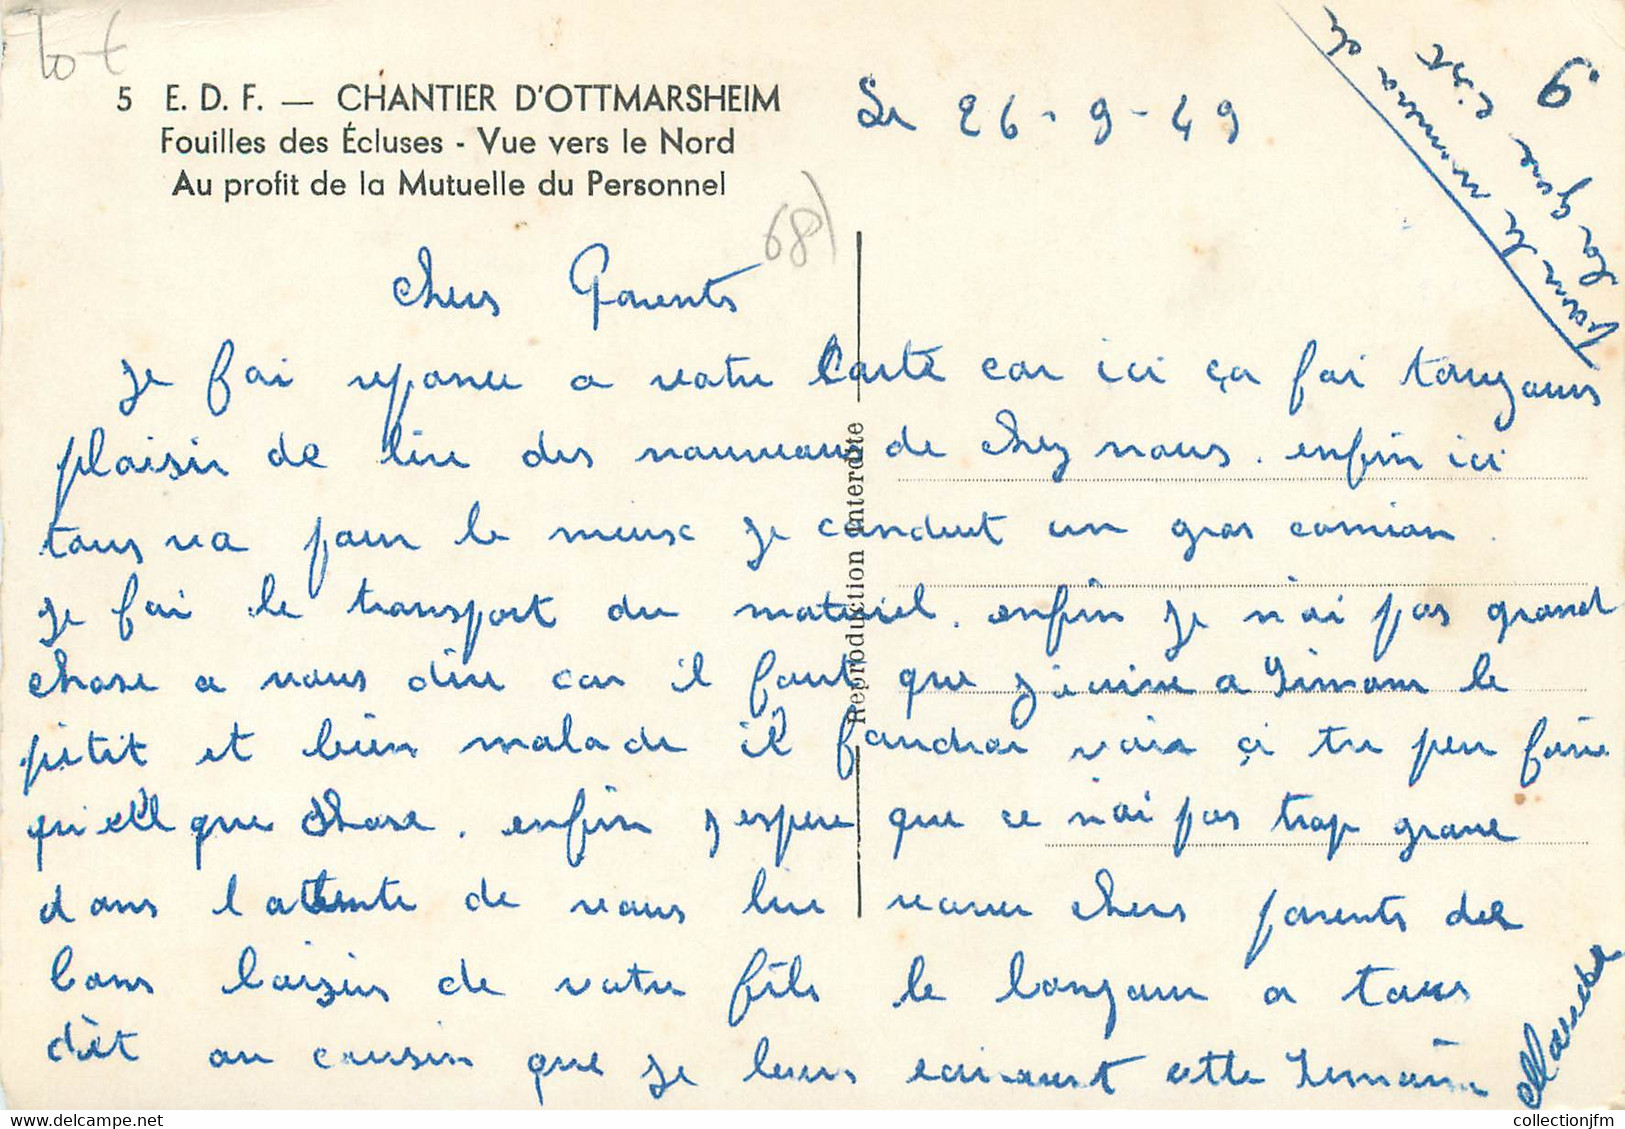 lot
5 E. D. F. — CHANTIER D'OTTMARSHEIM
Fouilles des Écluses - Vue vers le Nord
Au profit de la Mutuelle du Personnel
Le 26-9-49
68)
Reproduction Interdite
Chers Parents
Je fai reponse a votre Carte car ici ça fai toujours
plaisir de lire des nouveaux de chez nous. enfin ici
tous va pour le mieux je conduit un gros camion.
Je fai le transport du materiel. enfin je n'ai pas grand
chose a vous dire car il faut que j'ecrive a Simone le
petit et bien malade il faudrai voir çi tu peu faire
qu'elle que chose. enfin j'espere que ce n'ai pas trop grave
dans l'attente de vous lire recever chers parents des
bons baisers de votre fils le bonjour a tous
dèt au cousin que je leurs ecrivent cette semaine
Marcel
pour le numero de
La gue c'est
9
collectionjfm